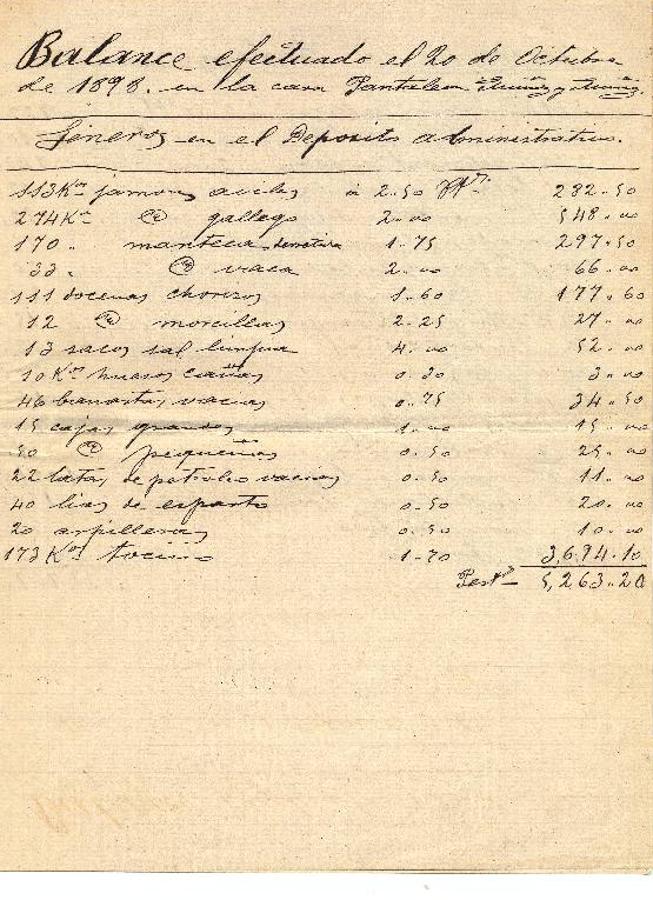 Balance efectuado el 20 de Octubre
de 1898. en la casa Pantaleon Muñiz y Muñiz.
Géneros en el Deposito administrativo.
113 Kos jamones aviles à 2-50 Pts 282-50
274 Ks id gallego 2-00 548-00
170 " manteca derretida 1-75 297-50
33 " id vaca 2-00 66-00
111 docenas chorizos 1-60 177-60
12 id morcillas 2-25 27-00
13 sacos sal limpia 4-00 52-00
10 Ks huesos cañas 0-30 3-00
46 banastas vacias 0-75 34-50
15 cajas grandes 1-00 15-00
50 id pequeñas 0-50 25-00
22 latas de petroleo vacias 0-50 11-00
40 lias de esparto 0-50 20-00
20 arpilleras 0-50 10-00
173 Kos tocino 1-70 3,694-10
Pesets 5,263-20